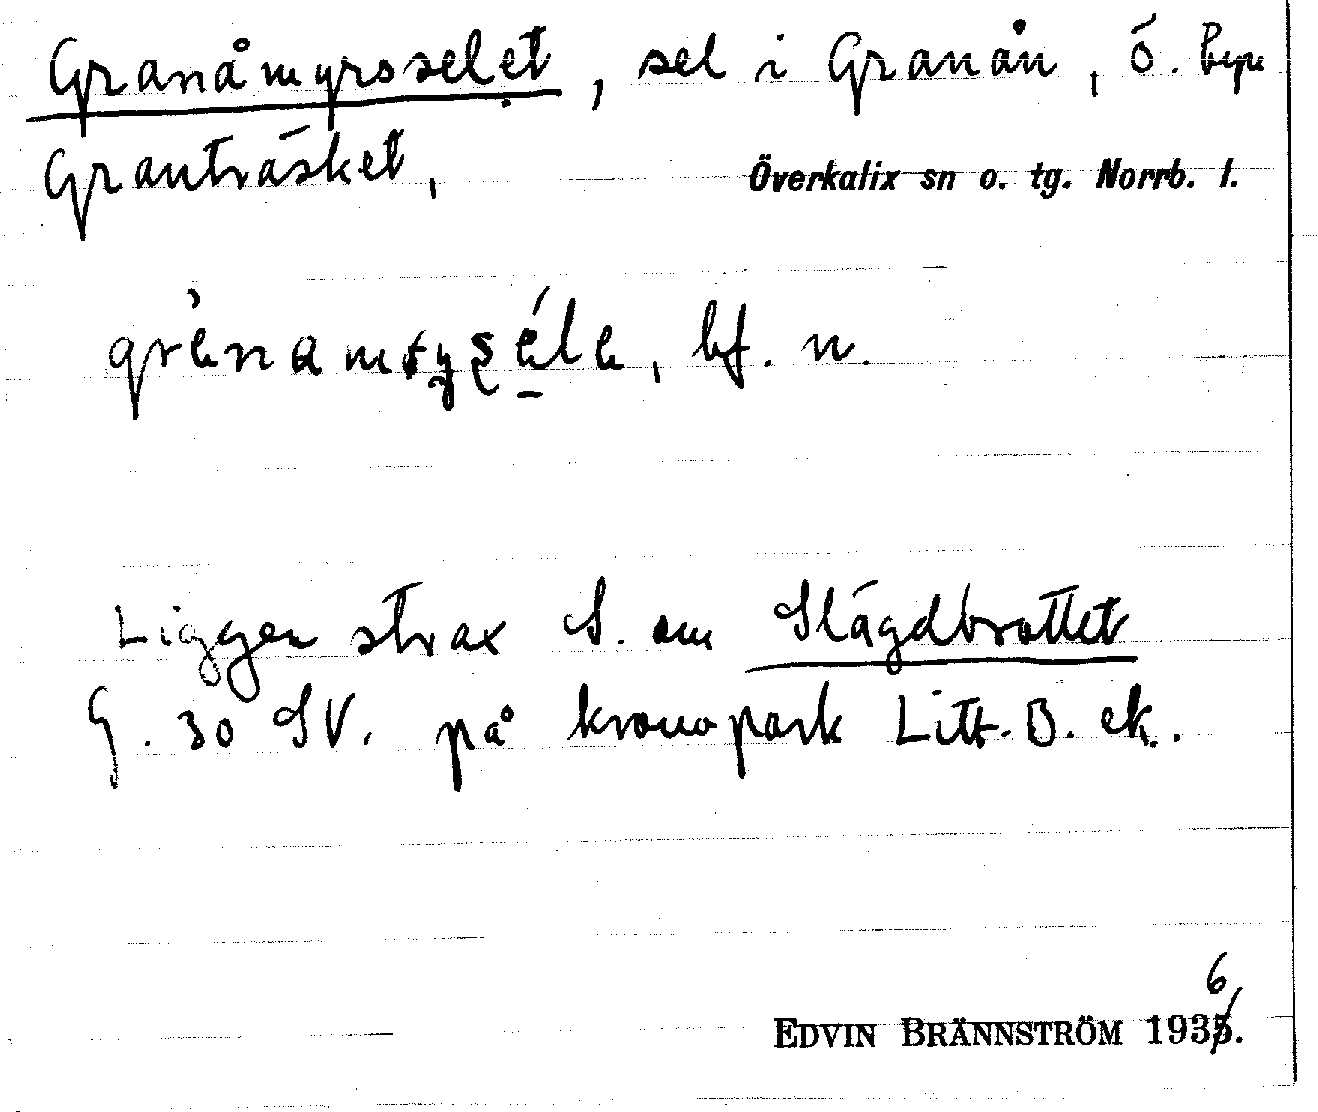 Granåmyroselet, sel i Granån, Ö. byn
Granträsket,
Överkalix sn o. tg. Norrb. l.
bf. n.
Ligger strax S. om Slägdbrottet
G. 30 SV. på kronopark Litt. B. ek.
6
EDVIN BRÄNNSTRÖM 1935.